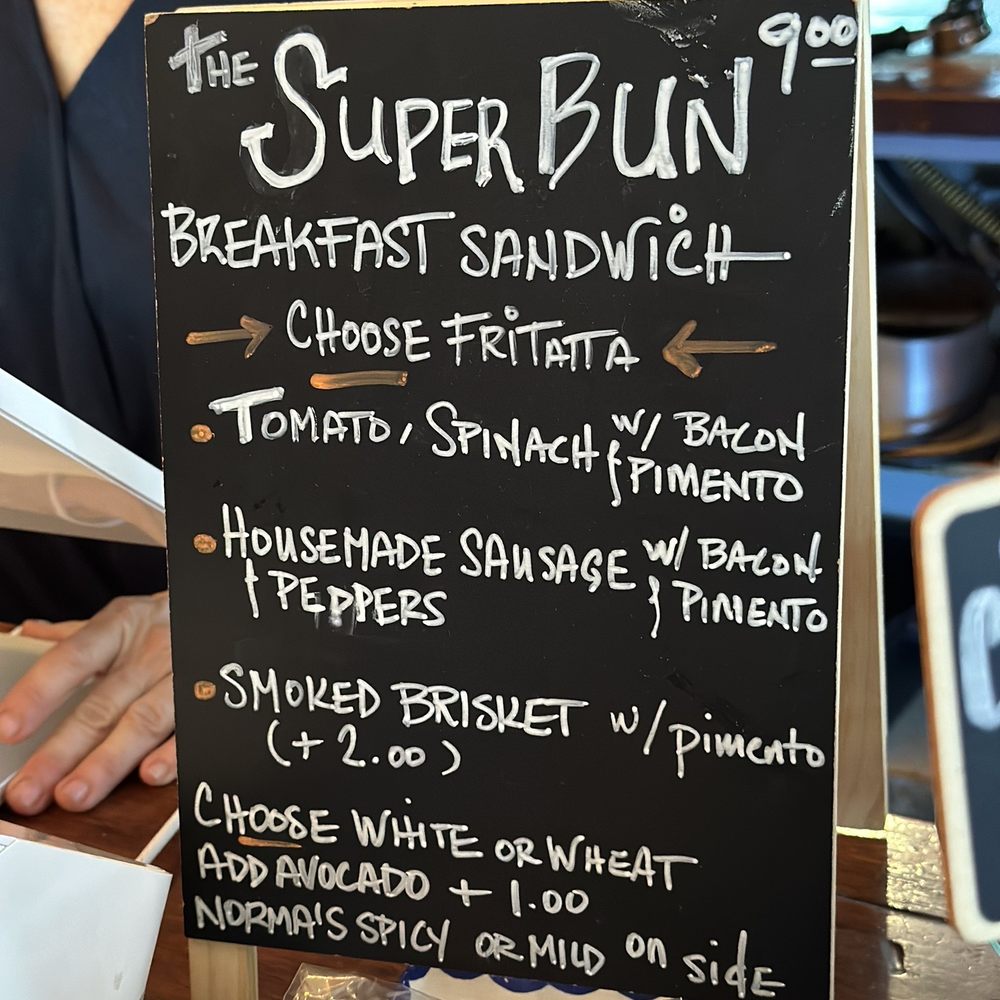 THE SUPER BUN 9.00
BREAKFAST SANDWICH
→ CHOOSE FRITATTA ←
• TOMATO, SPINACH w/ BACON
& PIMENTO
• HOUSEMADE SAUSAGE w/ BACON
& PEPPERS & PIMENTO
• SMOKED BRISKET w/ pimento
(+ 2.00)
CHOOSE WHITE OR WHEAT
ADD AVOCADO + 1.00
NORMA'S SPICY OR MILD on side